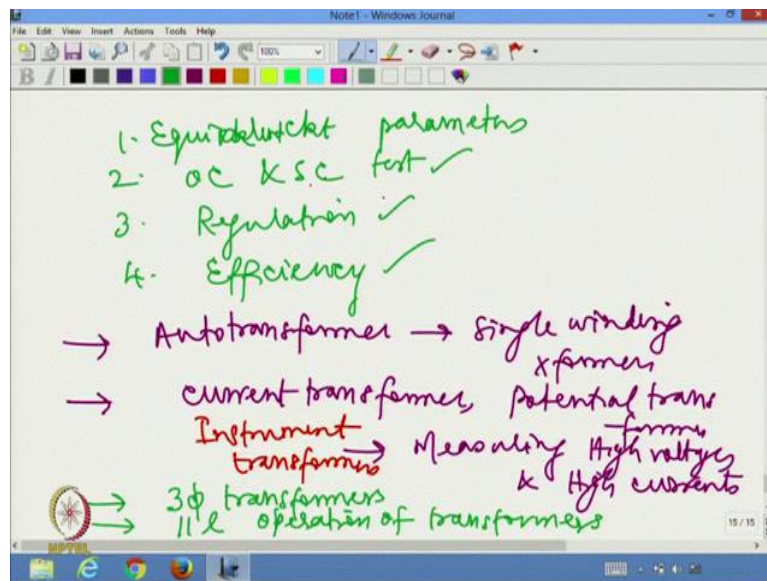 Note1 - Windows Journal
File Edit View Insert Actions Tools Help
100%
B I
1. parameters
2. OC & S.C test ✓
3. Regulation ✓
4. Efficiency ✓
→ Autotransformer → Single winding
xformers
→ current transformer, Potential trans
former
Instrument
transformers → Measuring High voltages
& High currents
→ 3φ transformers
→ 11l operation of transformers
NPTEL
15 / 15